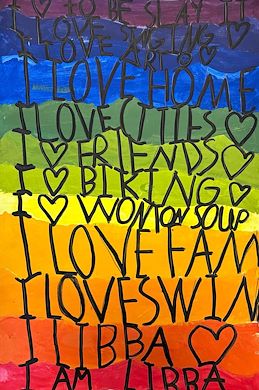 I ♡ TO BE SLAY IT
I LOVE SINGING ♡
I LOVE ART ♡
I LOVE HOME
I LOVE CITIES ♡
I ♡ FRIENDS ♡
I ♡ BIKING ♡
I ♡ WONTON SOUP
I LOVE FAM
I LOVE SWIM
I LIBBA ♡
I AM LIBBA